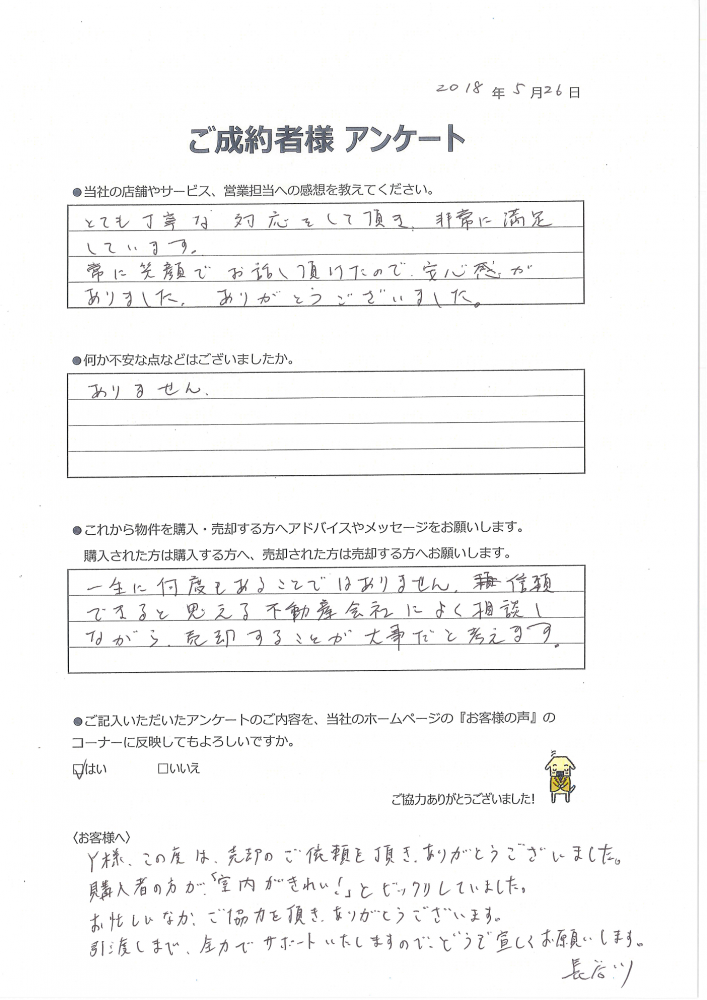 2018年5月26日
ご成約者様 アンケート
●当社の店舗やサービス、営業担当への感想を教えてください。
とても丁寧な対応をして頂き、非常に満足
しています。
常に笑顔でお話し頂けたので、安心感が
ありました。ありがとうございました。
●何か不安な点などはございましたか。
ありません。
●これから物件を購入・売却する方へアドバイスやメッセージをお願いします。
購入された方は購入する方へ、売却された方は売却する方へお願いします。
一生に何度もあることではありません。信頼
できると思える不動産会社によく相談し
ながら、売却することが大事だと考えます。
●ご記入いただいたアンケートのご内容を、当社のホームページの『お客様の声』の
コーナーに反映してもよろしいですか。
☑はい □いいえ
ご協力ありがとうございました!
〈お客様へ〉
Y様、この度は、売却のご依頼を頂き、ありがとうございました。
購入者の方が、「室内がきれい!」とビックリしていました。
お忙しいなか、ご協力を頂き、ありがとうございます。
引渡しまで、全力でサポートいたしますので、どうぞ宜しくお願いします。
長谷川